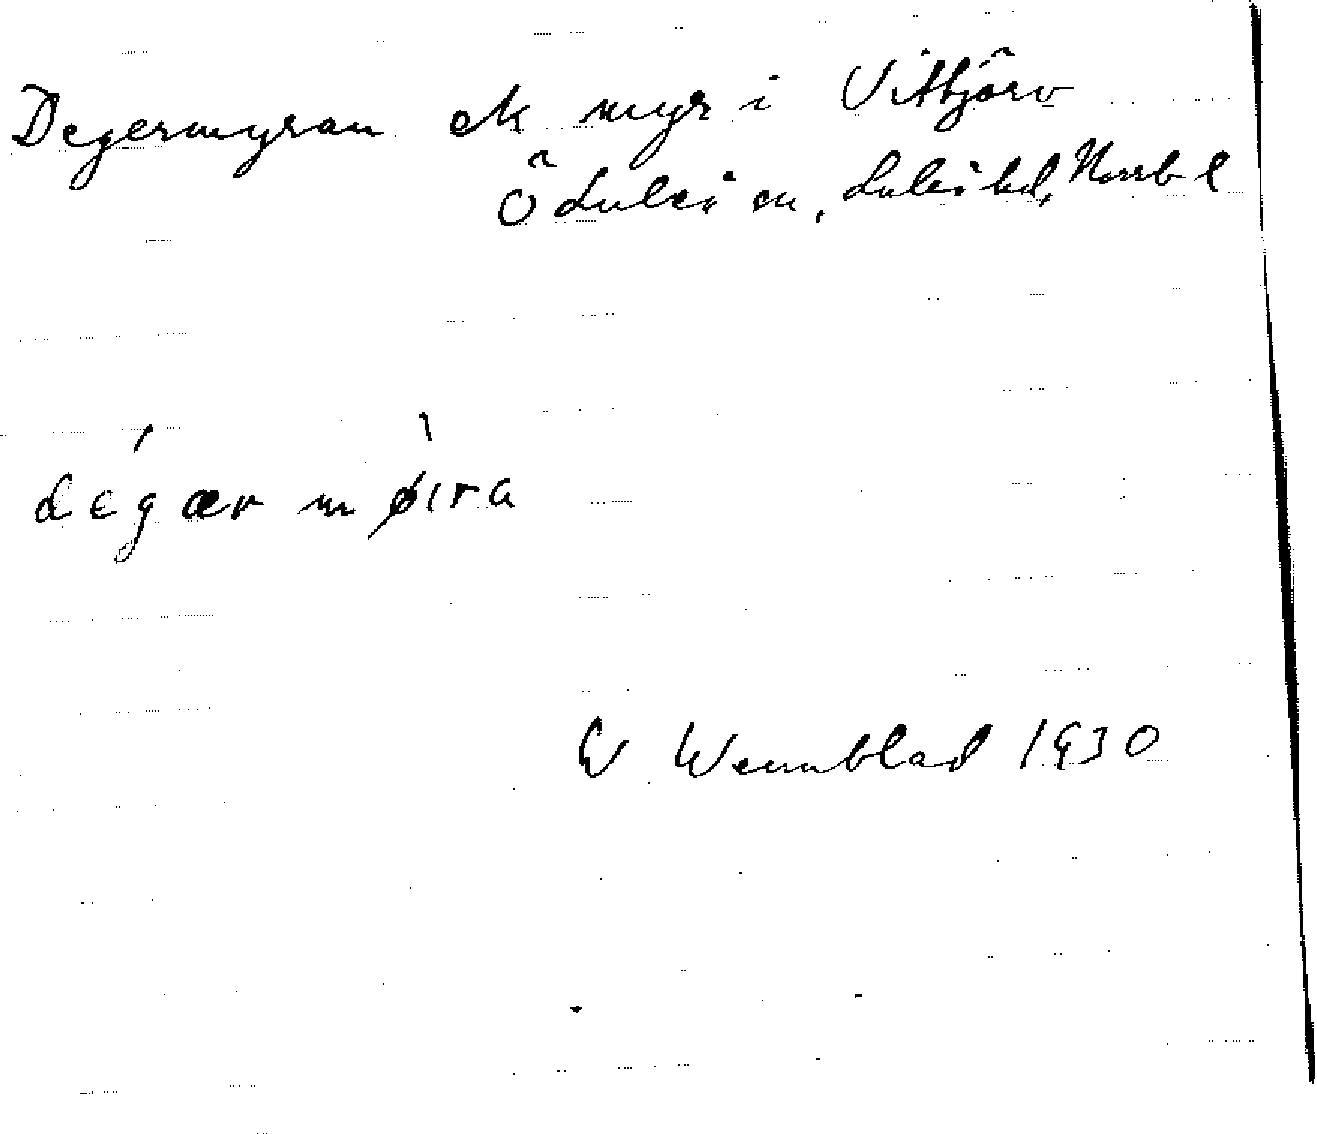 Degermyran ek myr i Vittjärv
Ö Luleå sn, Luleå tkl, Norrb l
dégær mø̀ira
W Wennblad 1930